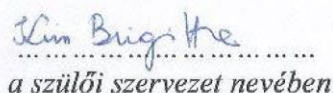 Kiss Brigitta
a szülői szervezet nevében